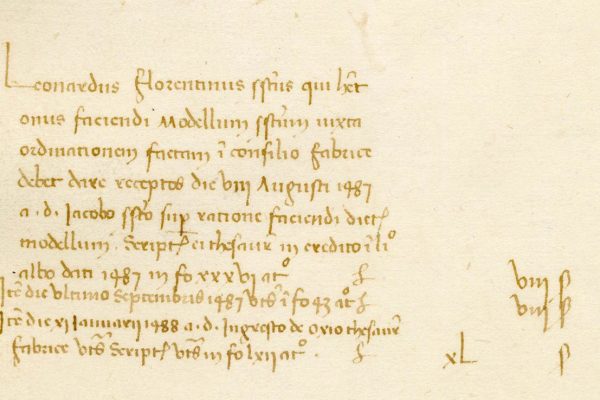 Leonardus florentinus sstus qui hēt
onus faciendi modellum sstum iuxta
ordinationem factam ī consilio fabrice
debet dare receptos die viii Augusti 1487
a . d . Iacobo ssto supr ratione faciendi dict
modellum . Script ei thesaur in credito ī liº
albo dati 1487 in fo xxxvi atº £ viii s
Itē die ultimo Septembris 1487 vts ī fo 43 atº £ viii s
Itē die xi Ianuarii 1488 a . d . de oxio thesaur
fabrice vts Script vts in fo lxii atº . £ xL s